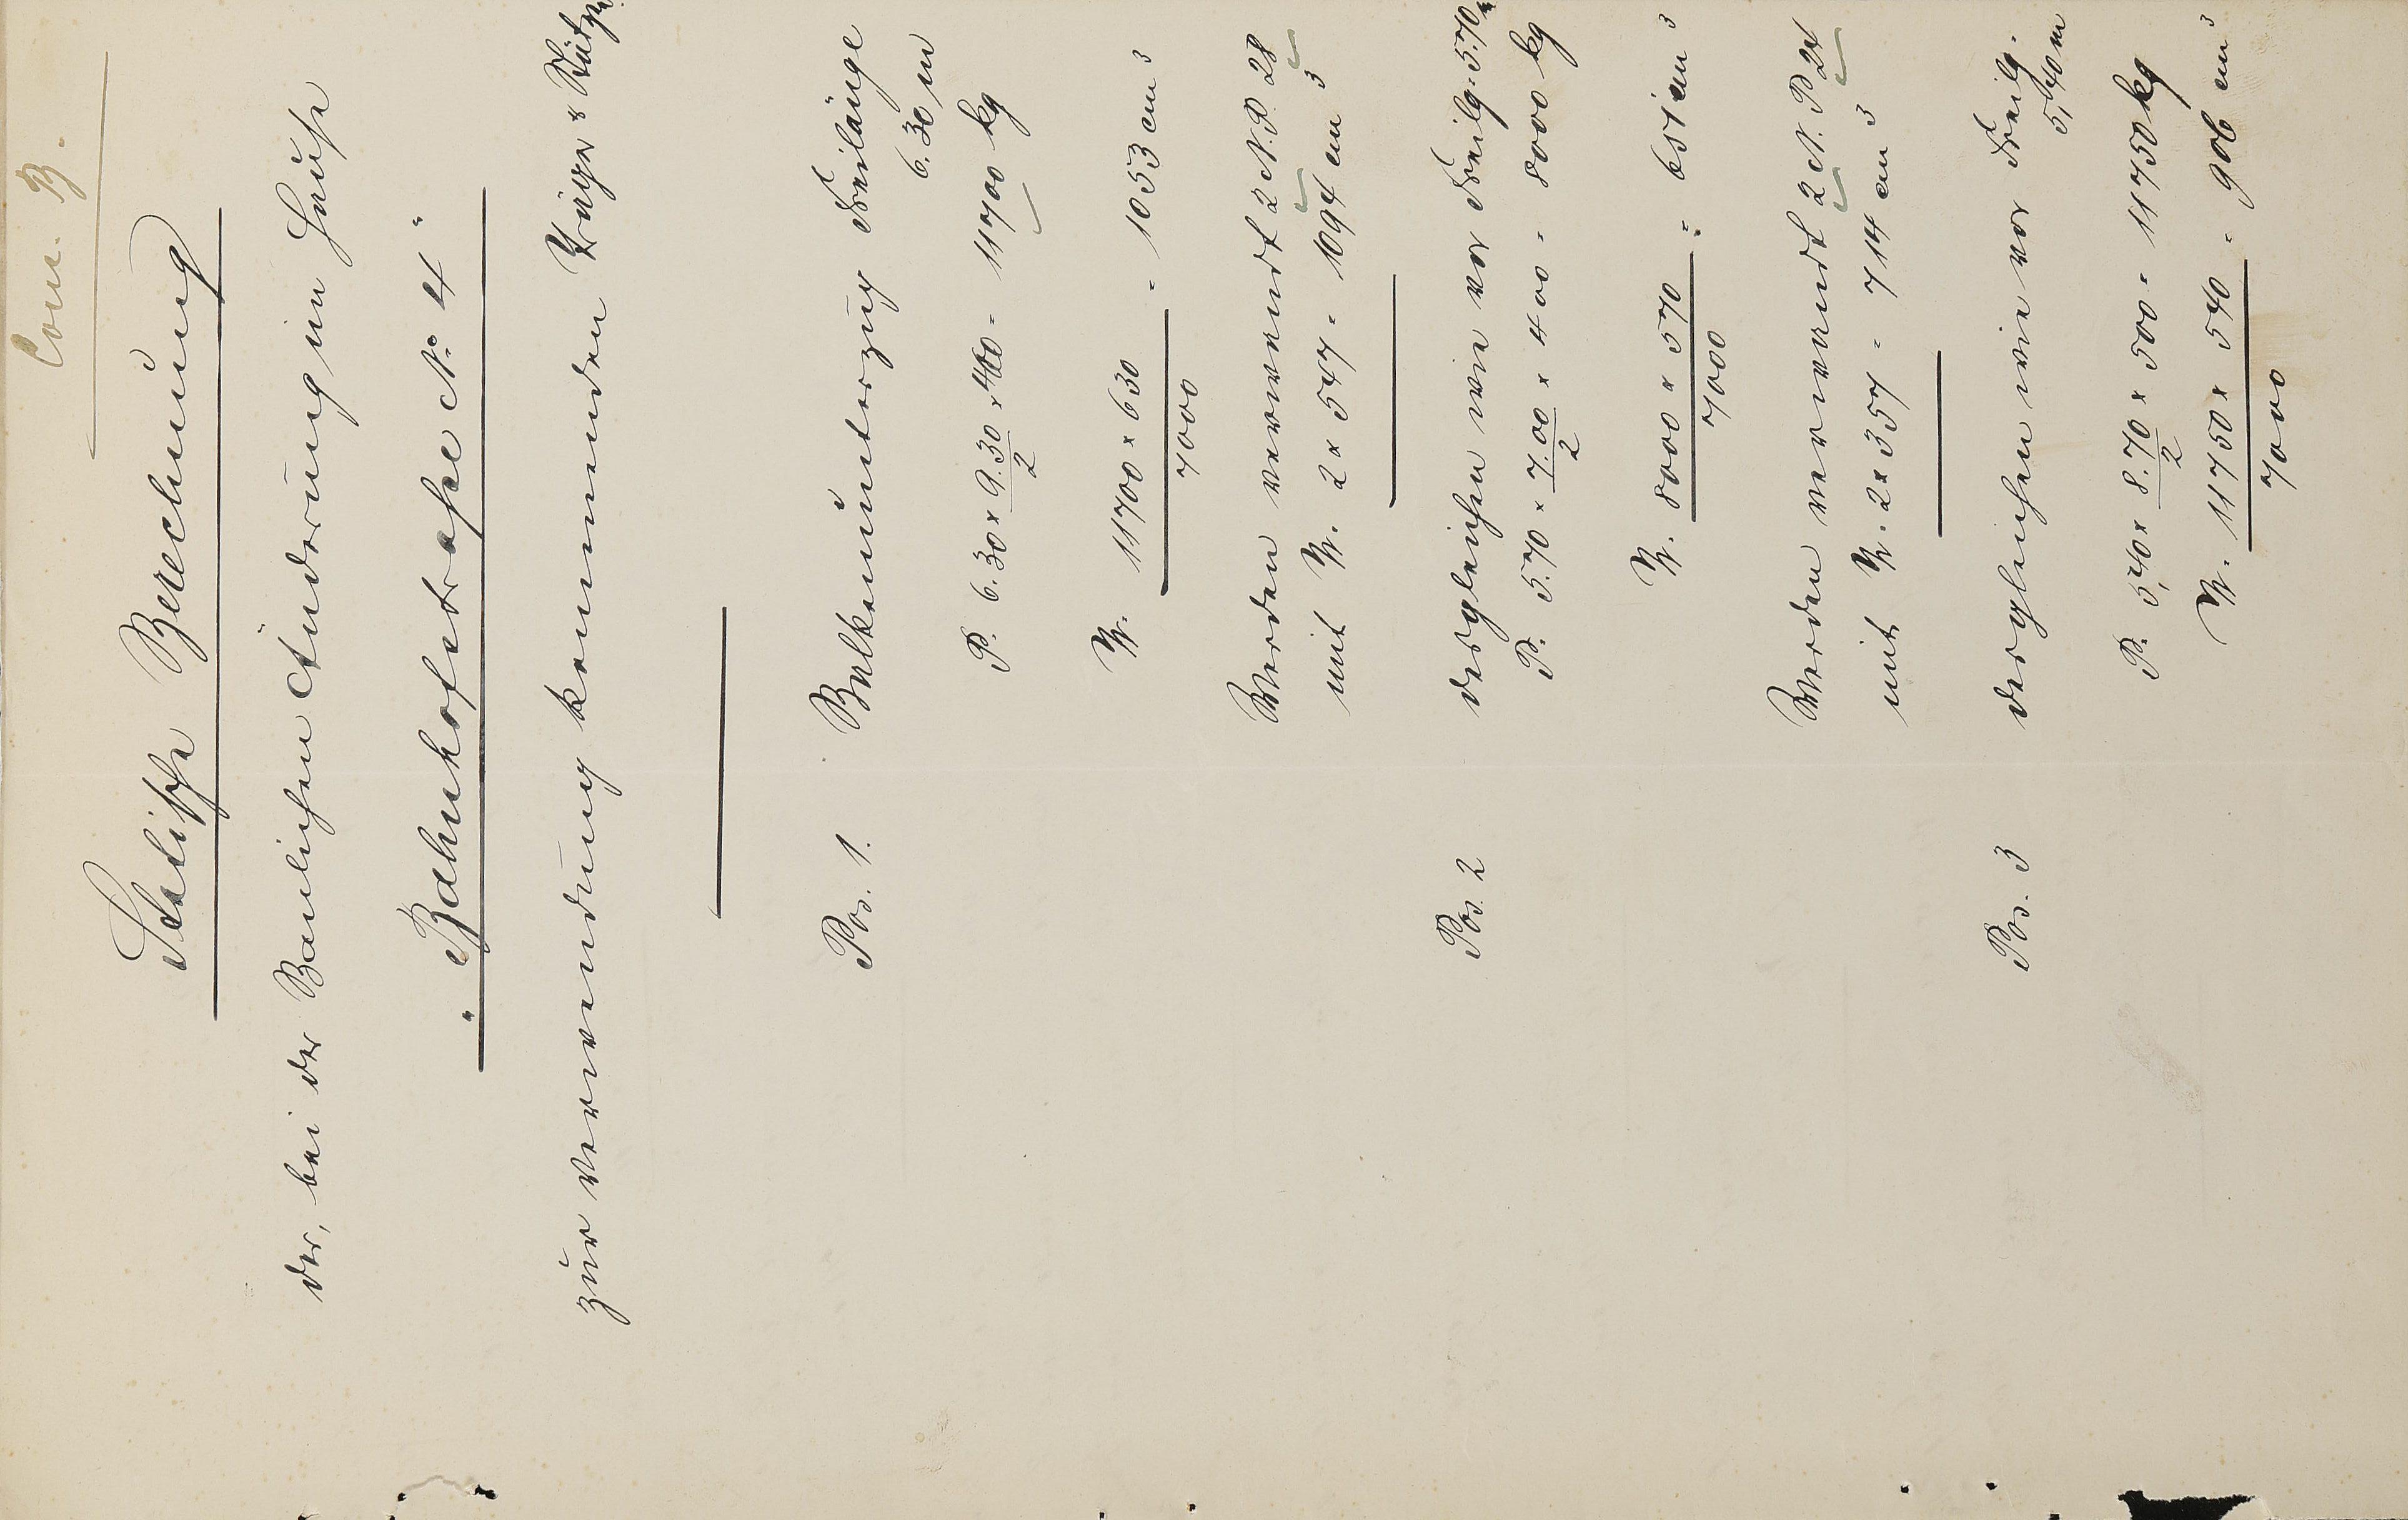 Com. B.
Statische Berechnung
der, bei der Baulichen Änderung im Hause
"Bahnhofstrasse No. 4"
zur verwendung kommenden Träger & Stützen
Pos. 1. Balkenunterzug Freilänge
6.30 m
P. 6.30 x 9.30/2 x 400 = 11700 kg
W. 11700 x 630 / 7000 = 1053 cm³
Werden verwendt 2 N.P. 28
mit W. 2 x 547 = 1094 cm³
Pos. 2 desgleichen wie vor Freilg. 5.70 m
P. 5.70 x 7.00/2 x 400 = 8000 kg
W. 8000 x 570 / 7000 = 651 cm³
Werden verwandt 2 N.P 24
mit W. 2 x 357 = 714 cm³
Pos. 3 desgleichen wie vor Freilg.
5,40 m
P. 5,40 x 8.70/2 x 500 = 11750 kg
W. 11750 x 540 / 7000 = 906 cm³